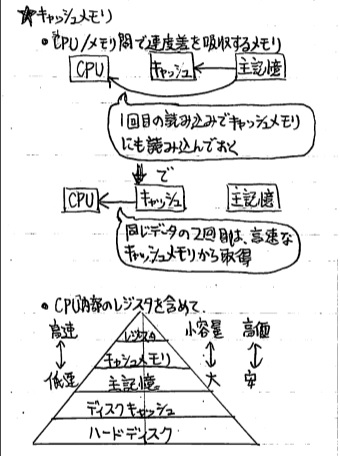 ★キャッシュメモリ
• CPU/メモリ間で速度差を吸収するメモリ
CPU キャッシュ 主記憶
1回目の読み込みでキャッシュメモリ
にも読み込んでおく
で
CPU キャッシュ 主記憶
同じデータの2回目は、高速な
キャッシュメモリから取得
• CPU内部のレジスタを含めて、
高速 レジスタ 小容量 高価
キャッシュメモリ
低速 主記憶 大 安
ディスクキャッシュ
ハードディスク